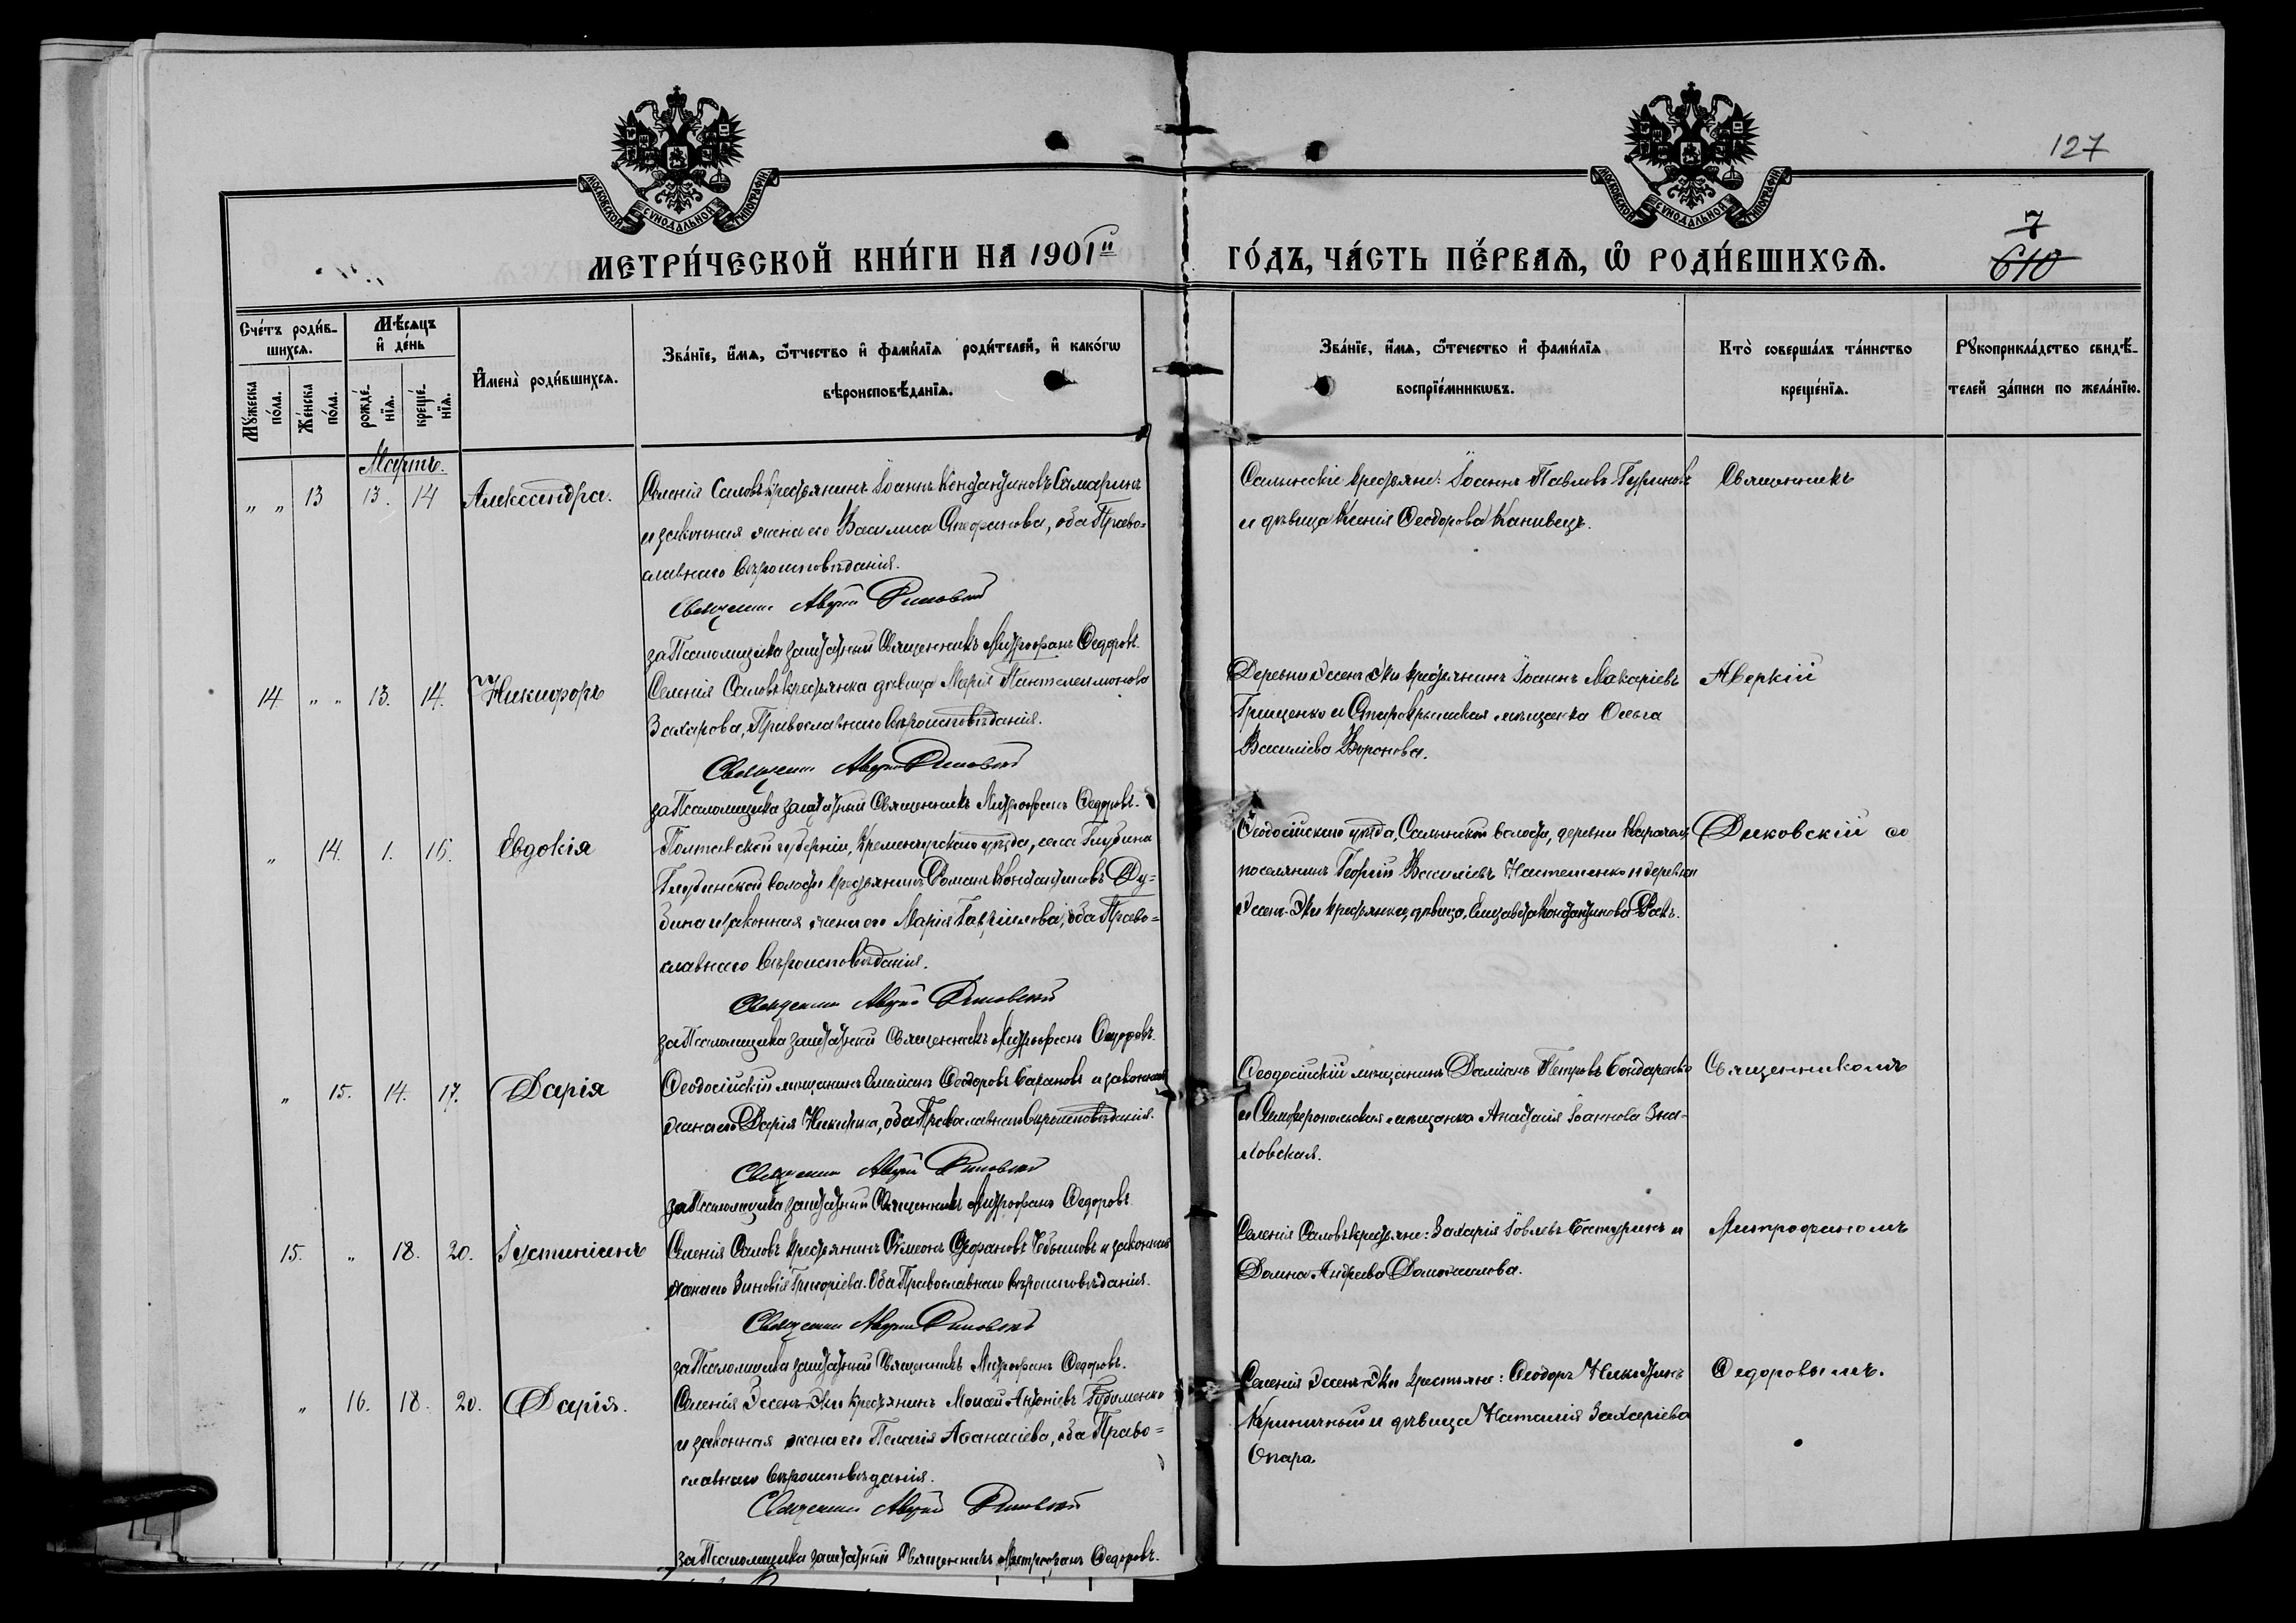 127
МОСКОВСКОЙ СѴНОДАЛЬНОЙ ТИПОГРАФІИ
МОСКОВСКОЙ СѴНОДАЛЬНОЙ ТИПОГРАФІИ
7
610
МЕТРИ́ЧЕСКОЙ КНИ́ГИ НА 1901й
ГО́ДЪ, ЧА́СТЬ ПЕ́РВАѦ, Ѡ҆ РОДИ́ВШИХСѦ.
Сче́тъ роди́в-
шихсѧ.
Мѣ́сѧцъ
и҆ де́нь
Мꙋ́жеска по́ла.
Же́нска по́ла.
рожде́-нїѧ.
креще́-нїѧ.
И҆мена̀ роди́вшихсѧ.
Зва́нїе, и҆́мѧ, ѻ҆́тчество и҆ фами́лїѧ роди́телей, и҆ како́гѡ
вѣроисповѣ́данїѧ.
Зва́нїе, и҆́мѧ, ѻ҆́течество и҆ фами́лїѧ
воспрїе́мникѡвъ.
Кто̀ соверша́лъ та́инство
креще́нїѧ.
Рꙋкоприкла́дство свидѣ́-
телей за́писи по жела́нїю.
Мартъ.
„ „ 13 13. 14 Александра.
Селенія Саловъ крестьянинъ Іоаннъ Константиновъ Самаринъ
и законная жена его Василиса Стефанова, оба Право-
славнаго вѣроисповѣданія.
Священникъ Аверкій Диковскій
за Псаломщика заштатный Священникъ Митрофанъ Федоровъ.
Салынскіе крестьяне: Іоаннъ Павловъ Гуриновъ
и дѣвица Ксенія Ѳеодорова Канивецъ.
Священникъ
14 „ „ 13. 14. Никифоръ
Селенія Саловъ крестьянка дѣвица Марія Пантелеимонова
Захарова, Православнаго вѣроисповѣданія.
Священникъ Аверкій Диковскій
за Псаломщика заштатный Священникъ Митрофанъ Федоровъ.
Деревни Эссенъ-Эки крестьянинъ Іоаннъ Макаріевъ
Грищенко и Старокрымская мѣщанка Ольга
Василіева Воронова.
Аверкій
„ 14. 1. 16. Евдокія
Полтавской губерніи, Кременчугскаго уѣзда, села Глубина
Глубинской волости крестьянинъ Романъ Константиновъ Ду-
бина и законная жена его Марія Гавріилова, оба Право-
славнаго вѣроисповѣданія.
Священникъ Аверкій Диковскій
за Псаломщика заштатный Священникъ Митрофанъ Федоровъ.
Ѳеодосійскаго уѣзда, Салынской волости, деревни
поселянинъ Георгій Василіевъ Настетенко и деревни
Эссенъ-Эки крестьянка, дѣвица, Елизавета Константинова Ракъ.
Диковскій со
„ 15. 14. 17. Дарія
Ѳеодосійскій мѣщанинъ Емеліанъ Ѳеодоровъ Барановъ и законная
жена его Дарія Никитина, оба Православнаго вѣроисповѣданія.
Священникъ Аверкій Диковскій
за Псаломщика заштатный Священникъ Митрофанъ Федоровъ
Ѳеодосійскій мѣщанинъ Даміанъ Петровъ Бондаренко
и Симферопольская мѣщанка Анастасія Іоаннова Зна-
ловская.
Священникомъ
15. „ 18. 20. Іустиніанъ
Селенія Саловъ крестьянинъ Симеонъ Стефановъ и законная
жена его Зиновія Григоріева. Оба Православнаго вѣроисповѣданія.
Священникъ Аверкій Диковскій
за Псаломщика заштатный Священникъ Митрофанъ Федоровъ.
Селенія Саловъ крестьяне: Захарія Іовлевъ Батуринъ и
Домна Андреева
Митрофаномъ
„ 16. 18. 20. Дарія.
Селенія Эссенъ-Эки крестьянинъ Моисей Антоніевъ Гудименко
и законная жена его Пелагія Аѳанасіева, оба Право-
славнаго вѣроисповѣданія.
Священникъ Аверкій Диковскій
за Псаломщика заштатный Священникъ Митрофанъ Федоровъ.
Селенія Эссенъ-Эки крестьяне: Ѳеодоръ Никитинъ
Криничный и дѣвица Наталія Захаріева
Опара.
Федоровымъ.